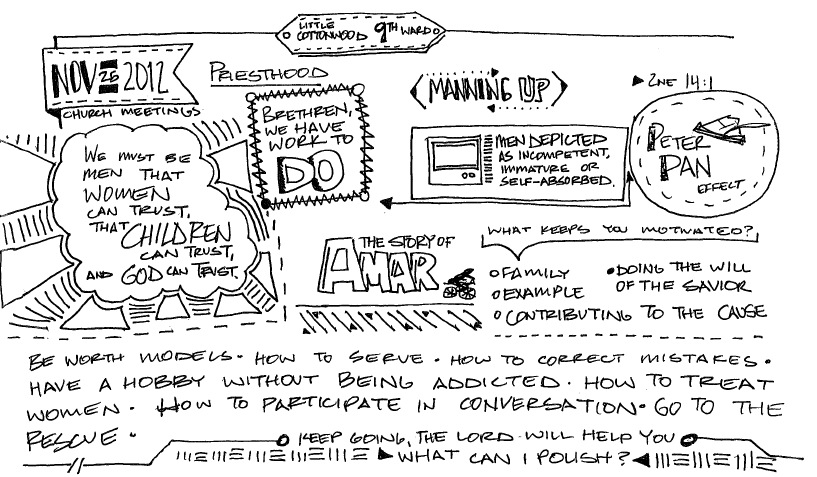 LITTLE
COTTONWOOD 9TH WARD
NOV 25 2012
CHURCH MEETINGS
PRIESTHOOD
BRETHREN,
WE HAVE
WORK TO
DO
WE MUST BE
MEN THAT
WOMEN
CAN TRUST,
THAT CHILDREN
CAN TRUST,
AND GOD CAN TRUST.
MANNING UP
2NE 14:1
MEN DEPICTED
AS INCOMPETENT,
IMMATURE OR
SELF-ABSORBED.
PETER
PAN
EFFECT
THE STORY OF
AMAR
WHAT KEEPS YOU MOTIVATED?
FAMILY
EXAMPLE
CONTRIBUTING TO THE CAUSE
DOING THE WILL
OF THE SAVIOR
BE WORTH MODELS · HOW TO SERVE · HOW TO CORRECT MISTAKES ·
HAVE A HOBBY WITHOUT BEING ADDICTED · HOW TO TREAT
WOMEN · HOW TO PARTICIPATE IN CONVERSATION · GO TO THE
RESCUE ·
KEEP GOING, THE LORD WILL HELP YOU
WHAT CAN I POLISH?